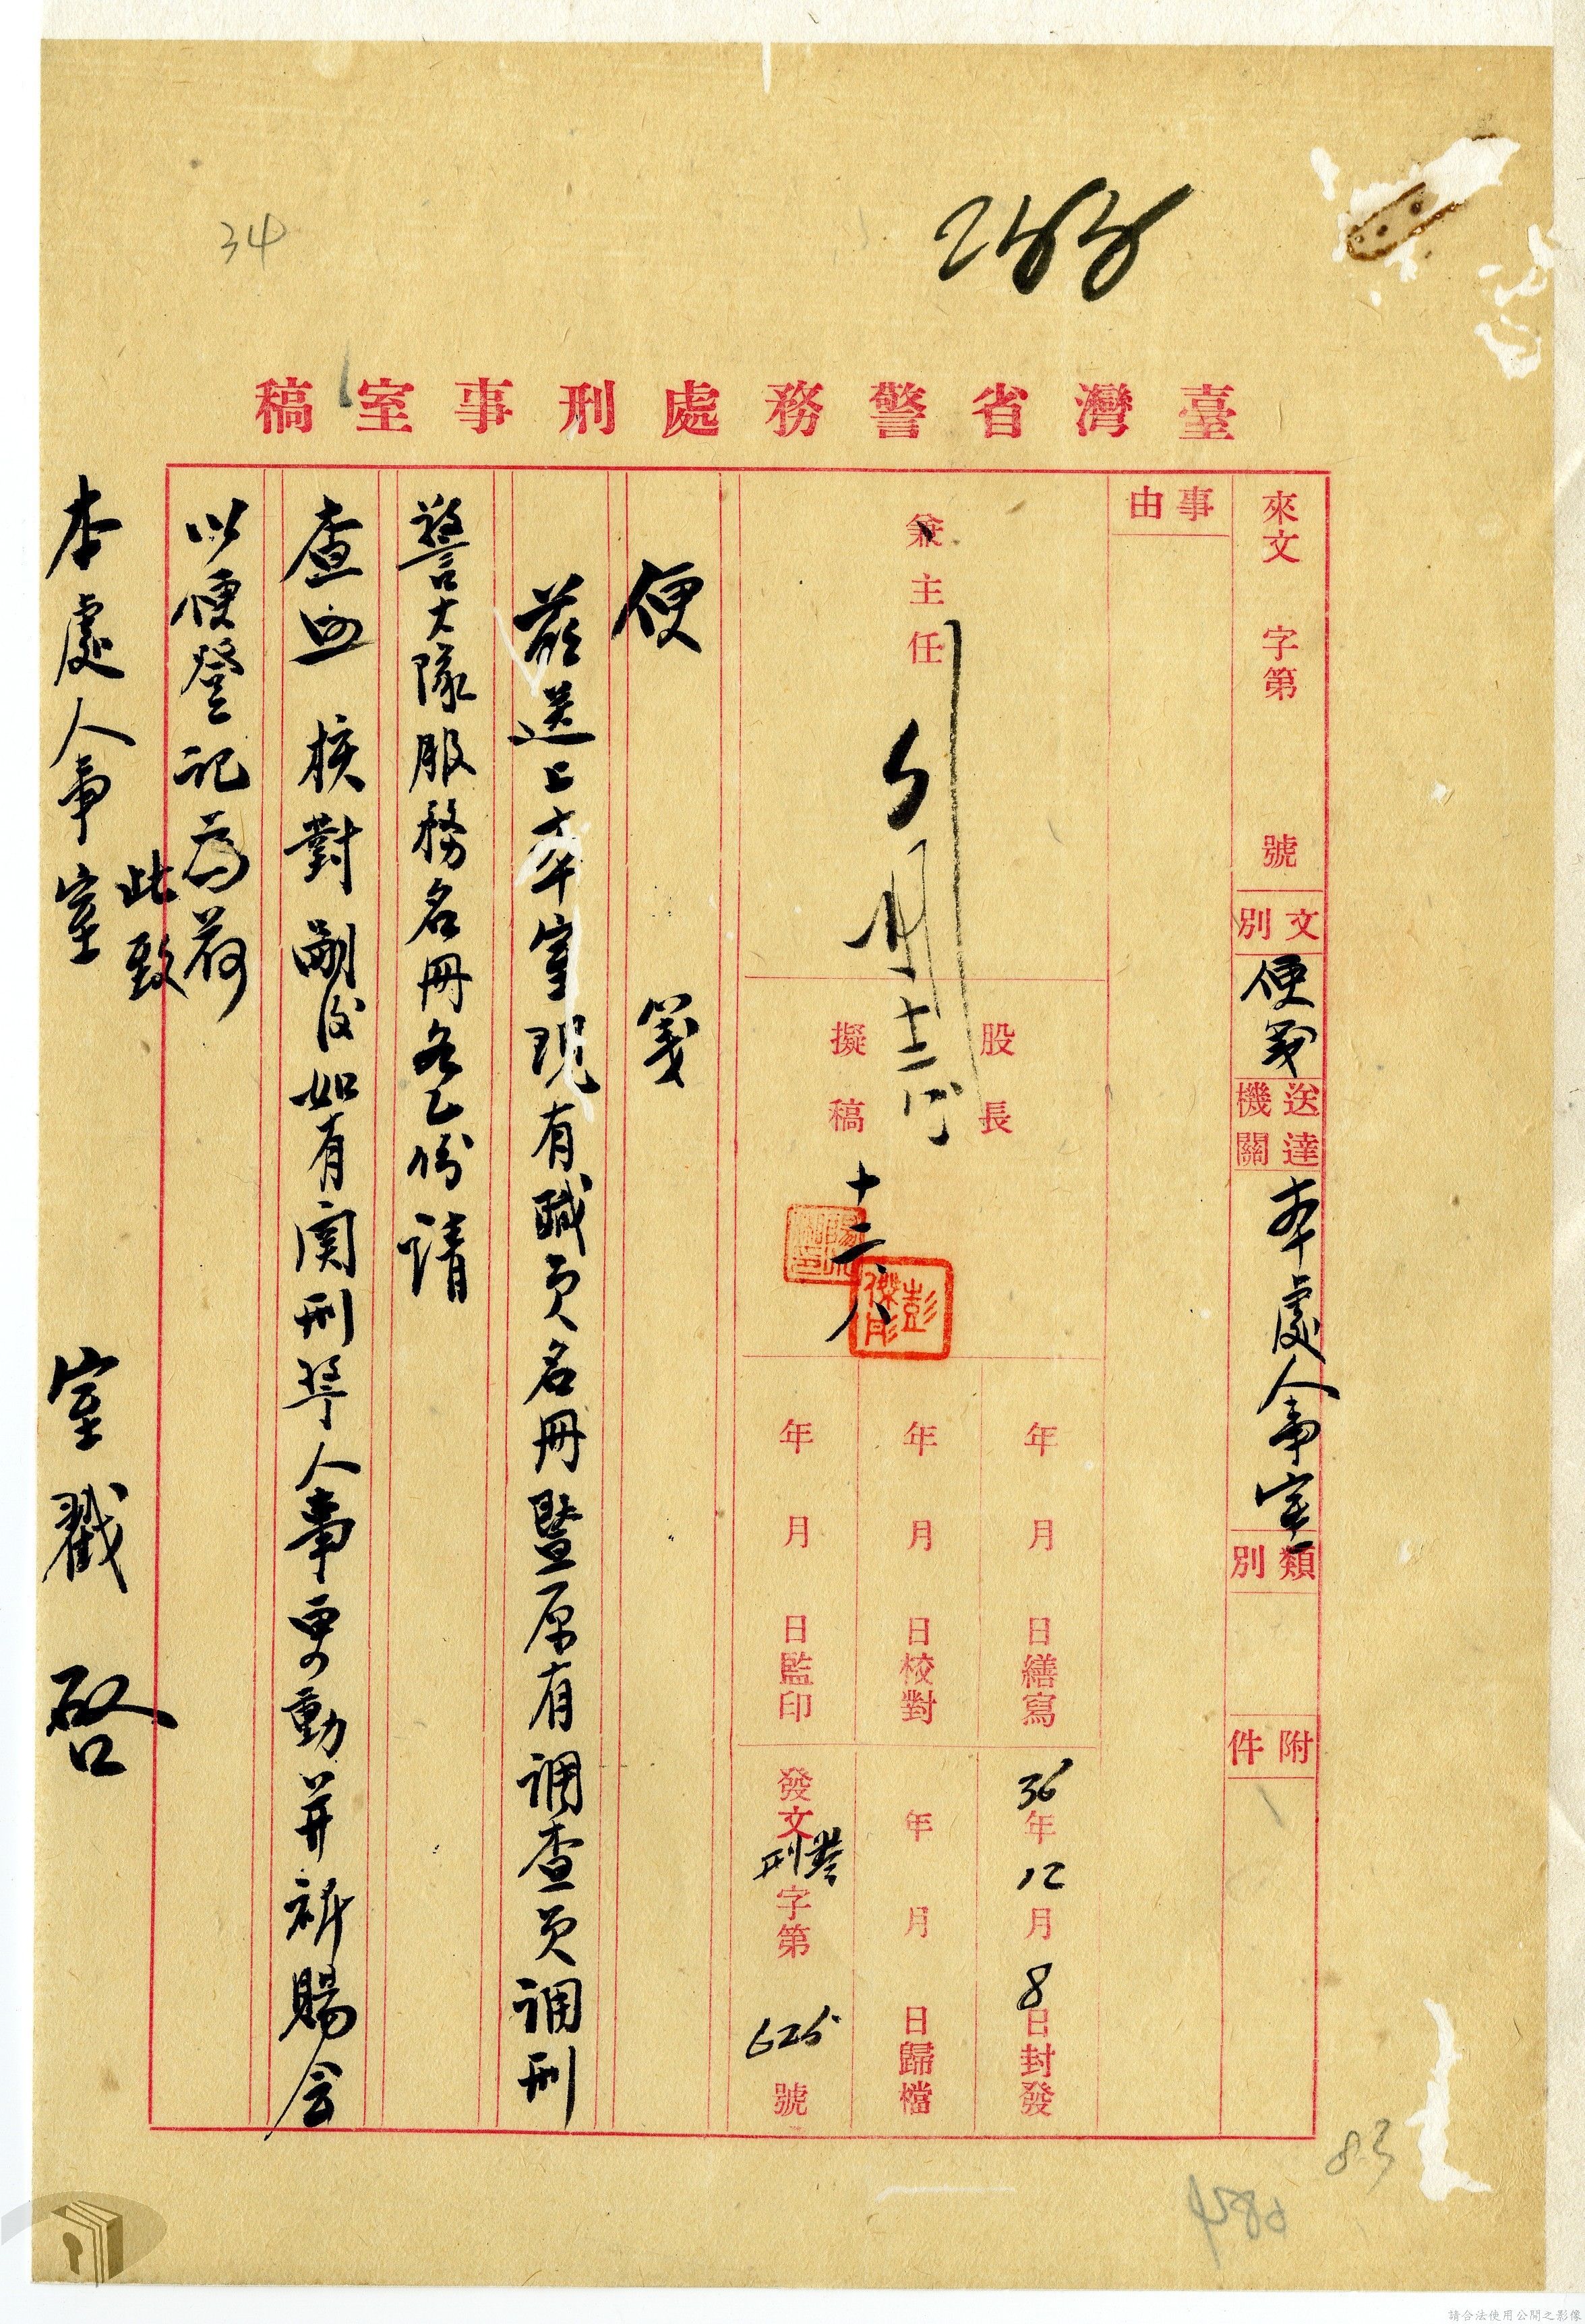 34
臺灣省警務處刑事室稿
來文 字第 號
文別 便箋
送達機關 本處人事室
類別
附件
事由
兼主任
股長
擬稿
十二
八
彭傑彤
年 月 日繕寫
年 月 日校對
年 月 日監印
36年12月8日封發
年 月 日歸檔
發文 刑 字第 625 號
便箋
茲送上本室現有職員名冊暨原有調查員調刑
警大隊服務名冊各乙份請
查照核對嗣後如有関刑警人事更動并祈賜会
以便登記為荷
此致
本處人事室
室戳 啓
83
請合法使用公開之影像